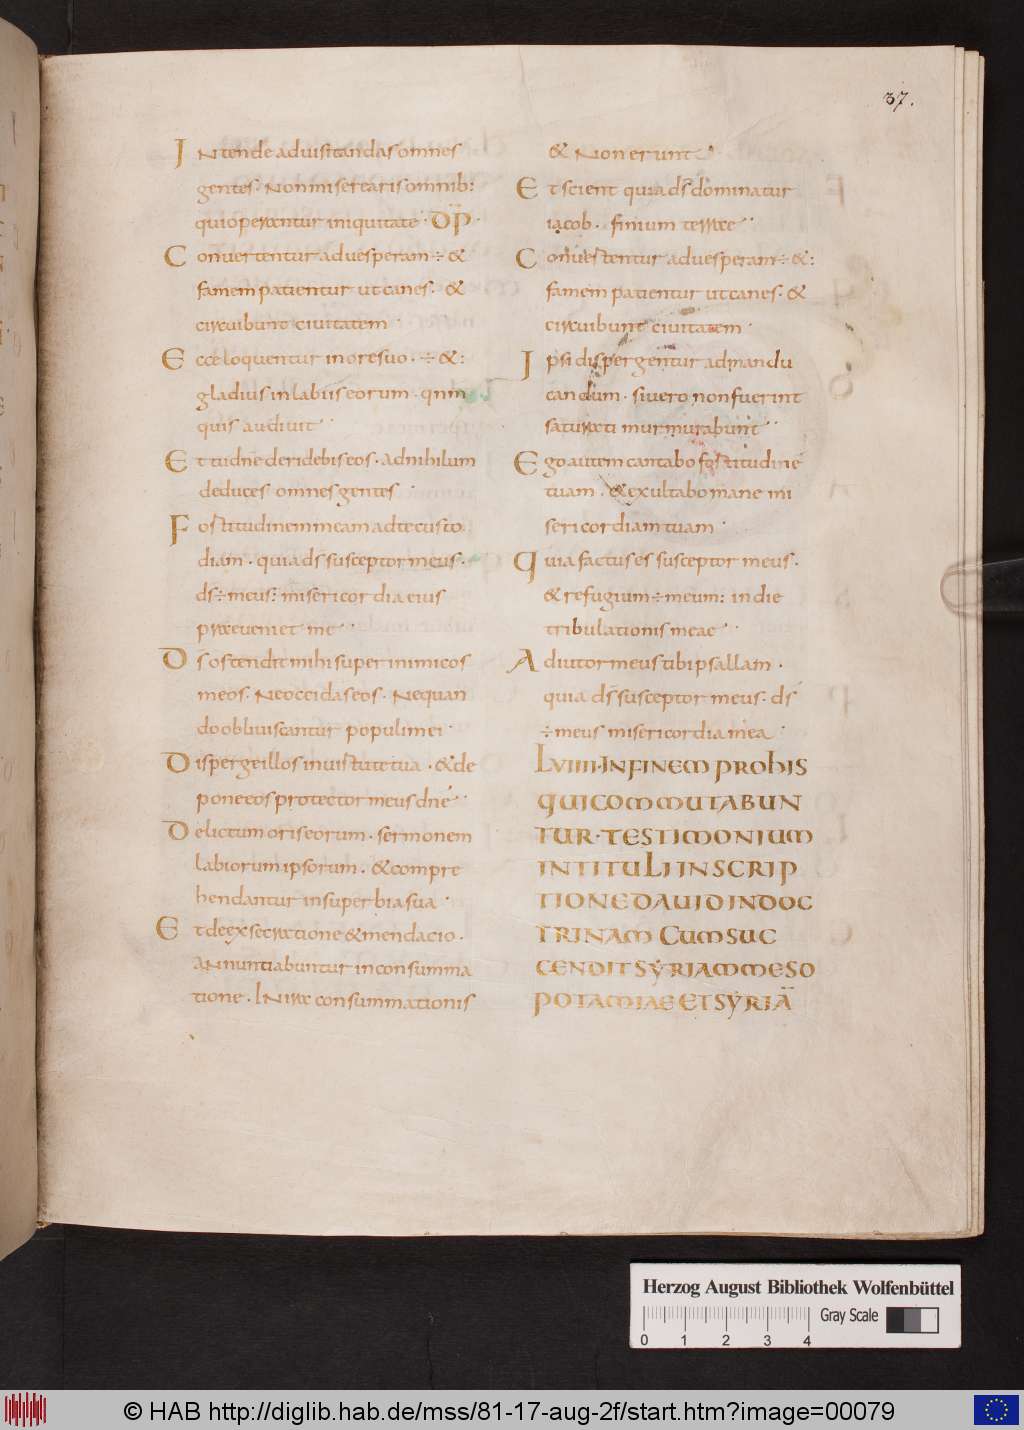 37.
INtende aduisitandas omnes
gentes. Non miseriaris omnib:
qui operantur iniquitate. DP̄.
Conuertentur aduesperam ÷ &
famem patientur ut canes. &
circuibunt ciuitatem.
Ecce loquentur in ore suo. ÷ &:
gladius in labiis eorum. qnm
quis audiuit.
Et tu dn̄e deridebis eos. adnihilum
deduces omnes gentes.
Fortitudinem meam ad te custo
diam. quia ds̄ susceptor meus.
ds̄ ÷ meus: misericordia eius
praeueniet me.
Ds̄ ostendit mihi super inimicos
meos. Ne occidas eos. Nequan
do obliuiscantur populi mei.
Disperge illos in uirtute tua. & de
pone eos protector meus dn̄e.
Delictum oris eorum. sermonem
labiorum ipsorum. & compre
hendantur in superbia sua.
Et de exsecratione & mendacio.
aNnuntiabuntur in consumma
tione. INira consummationis
& Non erunt.
Et scient quia ds̄ dominatur
iacob. finium terrae.
Conuertentur aduesperam ÷ &:
famem patientur ut canes. &
circuibunt ciuitatem.
Ipsi dispergentur admandu
candum. si uero non fuerint
saturati murmurabunt.
Ego autem cantabo fortitudinē
tuam. & exultabo mane mi
sericordiam tuam.
Quia factus es susceptor meus.
& refugium ÷ meum: in die
tribulationis meae.
Adiutor meus tibi psallam.
quia ds̄ susceptor meus. ds̄
÷ meus misericordia mea.
LVIIII. IN FINEM PRO HIS
QUI COMMUTABUN
TUR. TESTIMONIUM
IN TITULI INSCRIP
TIONE DAUID IN DOC
TRINAM CUM SUC
CENDIT SYRIAM MESO
POTAMIAE ET SYRIĀ
Herzog August Bibliothek Wolfenbüttel
Gray Scale
0 1 2 3 4
© HAB http://diglib.hab.de/mss/81-17-aug-2f/start.htm?image=00079